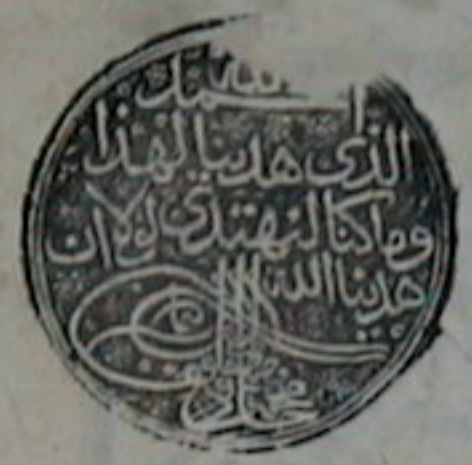 الحمد لله
الذي هدينا لهذا
وماكنا لنهتدي لولا ان
هدينا الله